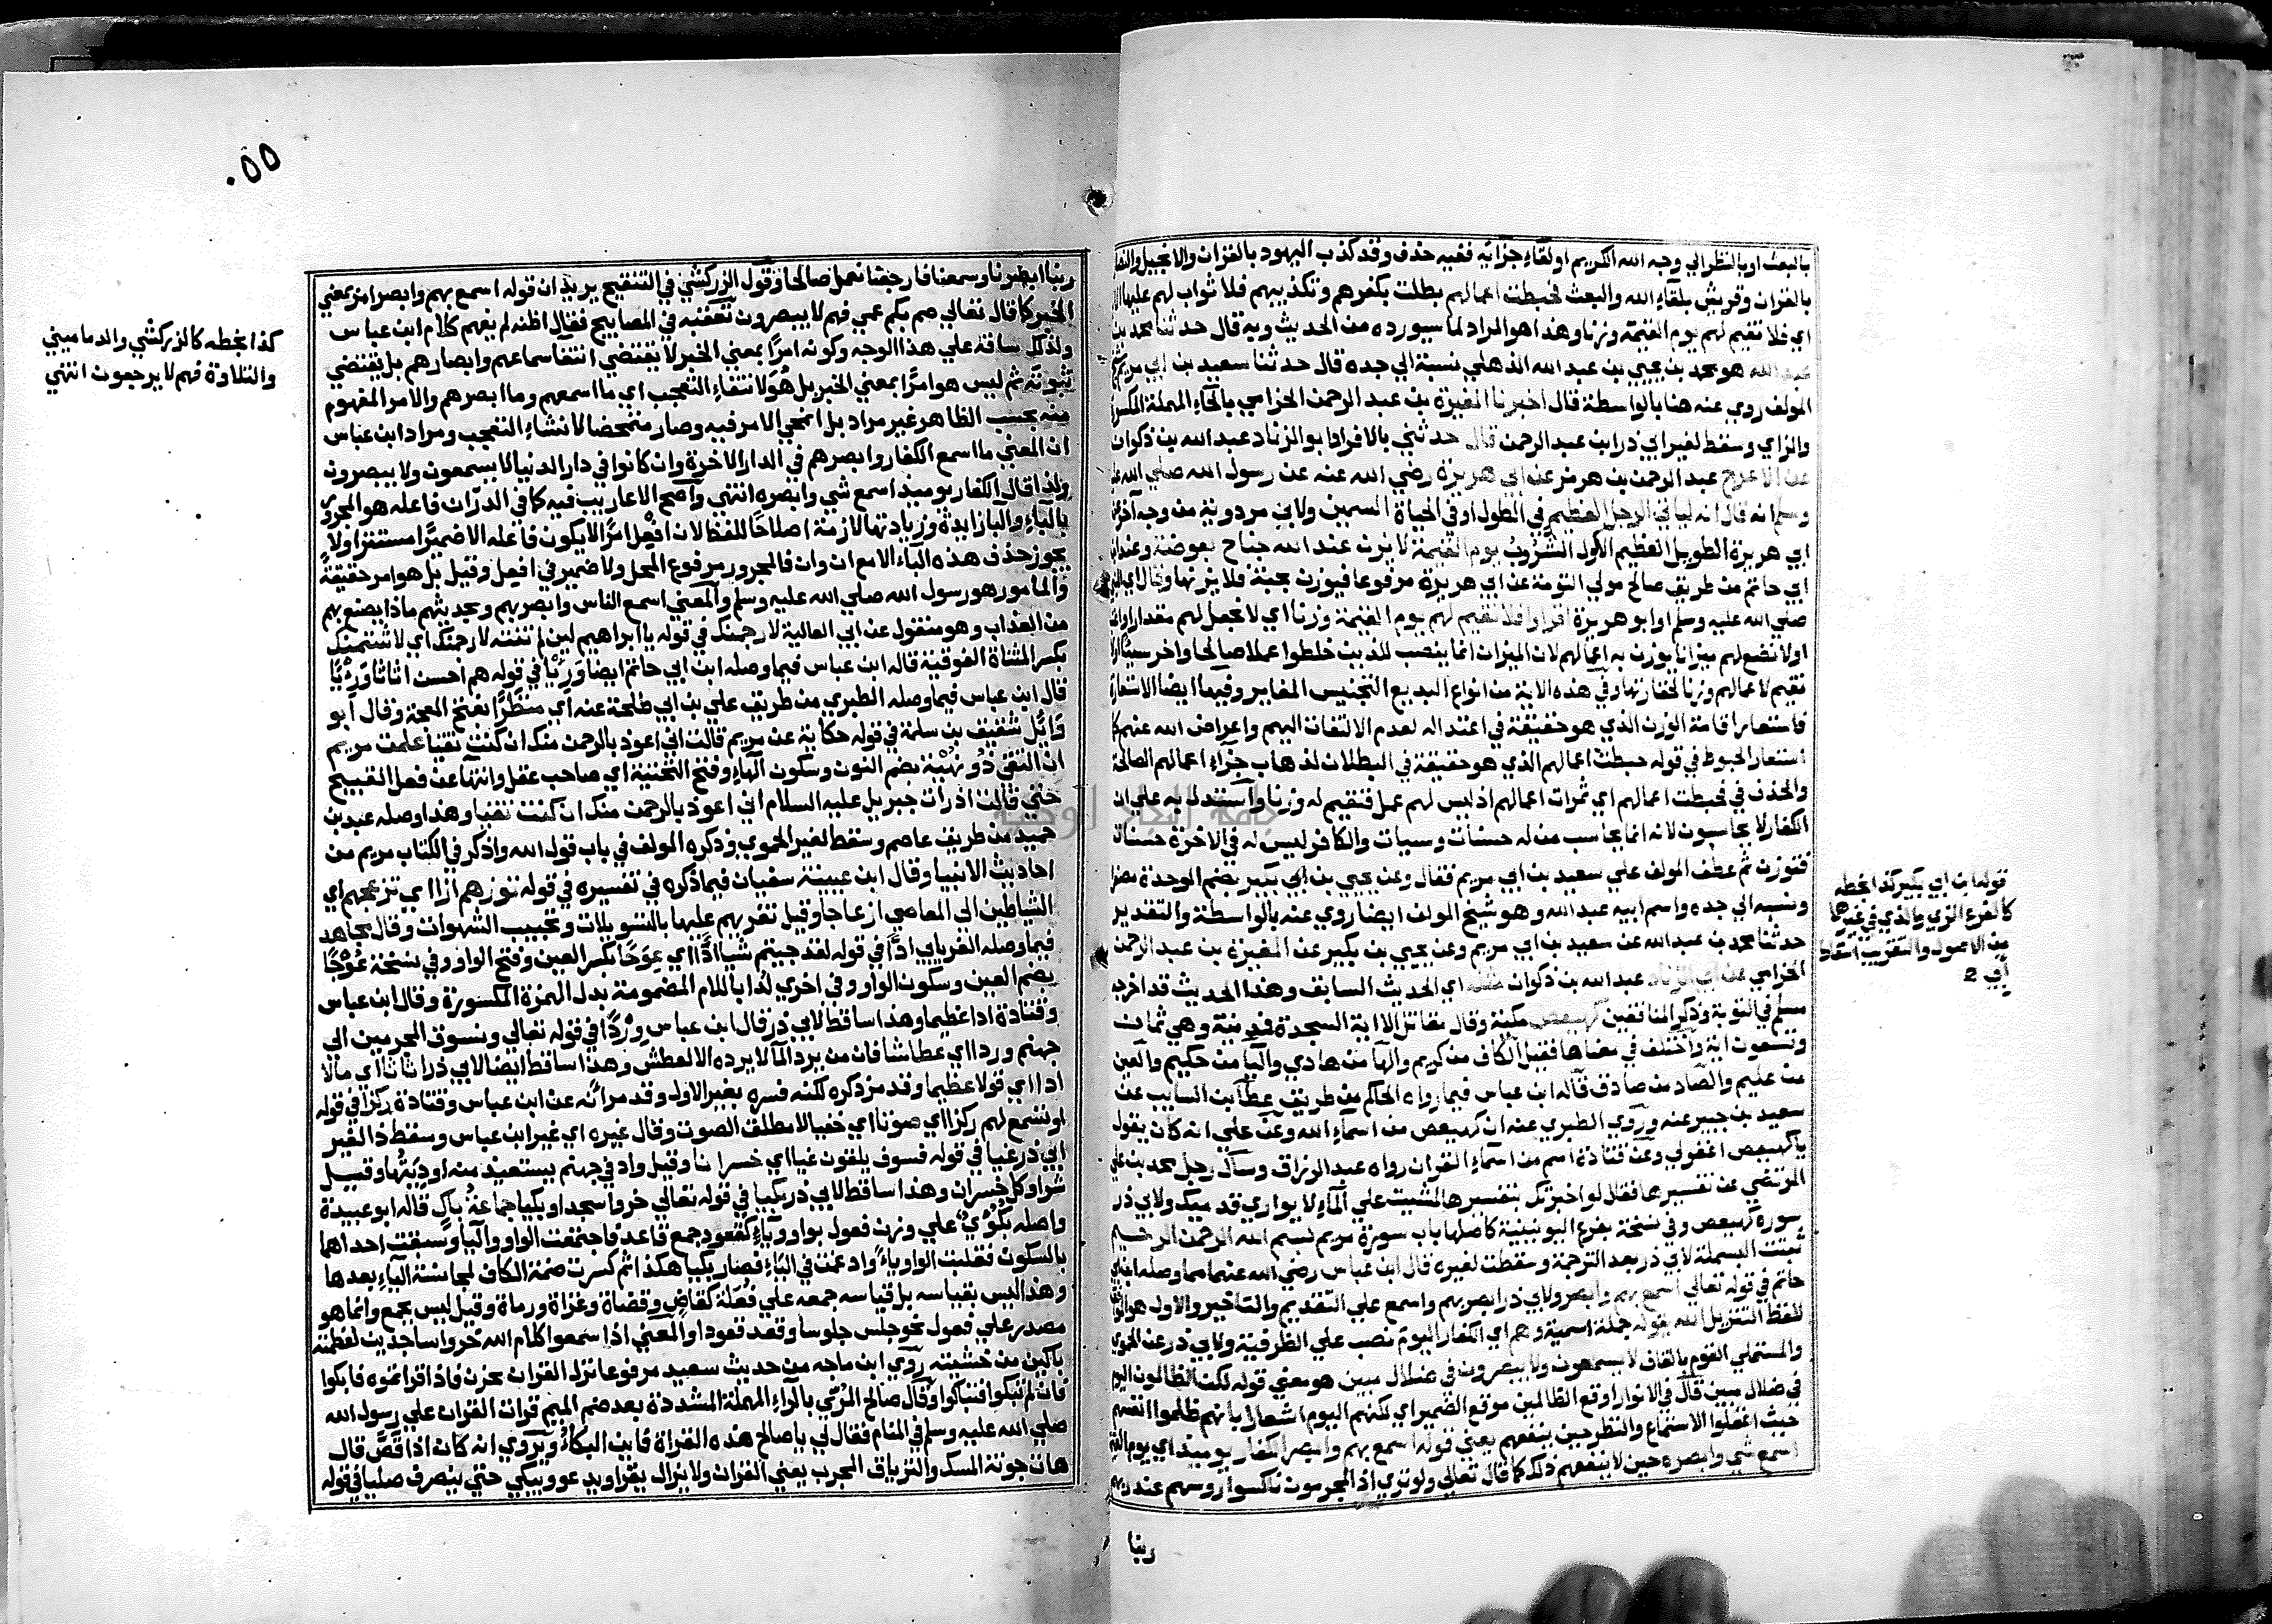 بالبعث او بالنظر الي وجه الله الكريم او لقاء جزائه ففيه حذف وقد كذب اليهود بالقران والانجيل والنصا
بالقران وقريش بلقاء الله والبعث فحبطت اعمالهم بطلت بكفرهم وتكذيبهم فلا ثواب لهم عليها
اي فلا نقيم لهم يوم القيمة وزنا وهذا هو المراد لما سيورده من الحديث وبه قال حدثنا محمد بن
عبد الله هو محمد بن يحيي بن عبد الله الذهلي نسبة الي جده قال حدثنا سعيد بن ابي مريم
المولف روي عنه هنا بالواسطة قال اخبرنا المغيرة بن عبد الرحمن الحزامي بالحاء المهملة المكسو
والزاي وسقط لغير ابي ذر ابن عبد الرحمن قال حدثني بالافراد ابو الزناد عبد الله بن ذكوان
عن الاعرج عبد الرحمن بن هرمز عن ابي هريرة رضي الله عنه عن رسول الله صلي الله
وسلم انه قال انه لياتي الرجل العظيم في الطول او في الجاه السمين ولابن مردوية من وجه آخر
ابي هريرة الطويل العظيم الاكول الشروب يوم القيمة لا يزن عند الله جناح بعوضة وعند ابن
ابي حاتم من طريق صالح مولي التومة عن ابي هريرة مرفوعا فيوزن بحبة فلا يزنها وقال اي النبي
صلي الله عليه وسلم او ابو هريرة اقراوا فلا نقيم لهم يوم القيمة وزنا اي لا نجعل لهم مقدارا
اولا نضع لهم ميزانا يوزن به اعمالهم لان الميزان انما ينصب للذين خلطوا عملا صالحا واخر سيئا
نقيم لاعمالهم وزنا لحقارتها وفي هذه الاية من انواع البديع التجنيس المغاير وفيها ايضا الاستعارة
فاستعار اقامة الوزن الذي هو حقيقة في اعتداله لعدم الالتفات اليهم واعراض الله عنهم كما
استعار الحبوط في قوله حبطت اعمالهم الذي هو حقيقة في البطلان لذهاب جزاء اعمالهم الصالحة
والحذف في فحبطت اعمالهم اي ثمرات اعمالهم اذ ليس لهم عمل فنقيم له وزنا واستدل به علي ان
الكفار لا يحاسبون لانه انما يحاسب من له حسنات وسيات والكافر ليس له في الاخرة حسنات
فتوزن ثم عطف المولف علي سعيد بن ابي مريم فقال وعن يحيي بن ابي بكير بضم الموحدة مصغرا
ونسبه الي جده واسم ابيه عبد الله وهو شيخ المولف ايضا روي عنه بالواسطة والتقدير
حدثنا محمد بن عبد الله عن سعيد بن ابي مريم وعن يحيي بن بكير عن المغيرة بن عبد الرحمن
الحزامي عن ابي الزناد عبد الله بن ذكوان مثله اي الحديث السابق وهذا الحديث قد اخرجه
مسلم في التوبة وذكر المنافقين كهيعص مكية وقال مقاتل الا اية السجدة فمدنية وهي ثمان
وتسعون اية واختلف في معناها فقيل الكاف من كريم والها من هادي واليا من حكيم والعين
من عليم والصاد من صادق قاله ابن عباس فيما رواه الحاكم من طريق عطا بن السايب عن
سعيد بن جبير عنه وروي الطبري عنه ان كهيعص من اسماء الله وعن علي انه كان يقول
يا كهيعص اغفرلي وعن قتادة اسم من اسماء القران رواه عبد الرزاق وسال رجل محمد بن علي
المرتضي عن تفسيرها فقال لو اخبرتك بتفسيرها لمشيت علي الماء لا يواري قدميك ولابي ذر
سورة كهيعص وفي نسخة بفرع اليونينية كاصلها باب سورة مريم بسم الله الرحمن الرحيم
ثبتت البسملة لابي ذر بعد الترجمة وسقطت لغيره قال ابن عباس رضي الله عنهما مما وصله ابن ابي
حاتم في قوله تعالي اسمع بهم وابصر ولابي ذر ابصر بهم واسمع علي التقديم والتاخير والاول هو الموافق
للفظ التنزيل الله يقوله جملة اسمية وهم اي الكفار اليوم نصب علي الظرفية ولابي ذر عن الحموي
والمستملي القوم بالقاف لا يسمعون ولا يبصرون في ضلال مبين هو معني قوله لكن الظالمون اليوم
في ضلال مبين قال في الانوار اوقع الظالمين موقع الضمير اي لكنهم اليوم اشعارا بانهم ظلموا انفسهم
حيث اغفلوا الاستماع والنظر حين ينفعهم يعني قوله اسمع بهم وابصر الكفار يوميذ اي يوم القيمة
اسمع شي وابصره حين لا ينفعهم ذلك كما قال تعالي ولو تري اذ المجرمون ناكسوا روسهم عند ربهم
ربنا
قوله ابن ابي بكير كذا بخطه
كالفرع المزي والذي في غيرها
من الاصول والتقريب اسقاط
ابي
٥٥٠
ربنا ابصرنا وسمعنا فارجعنا نعمل صالحا وقول الزركشي في التنقيح يريد ان قوله اسمع بهم وابصر امر بمعني
الخبر كما قال تعالي صم بكم عمي فهم لا يبصرون تعقبه في المصابيح فقال اظنه لم يفهم كلام ابن عباس
ولذلك ساقه علي هذا الوجه وكونه امرا بمعني الخبر لا يقتضي انتفا سماعهم وابصارهم بل يقتضي
ثبوته ثم ليس هو امرا بمعني الخبر بل هو لانشاء التعجب اي ما اسمعهم وما ابصرهم والامر المفهوم
منه بحسب الظاهر غير مراد بل انمحي الامر فيه وصار متمحضا لانشاء التعجب ومراد ابن عباس
ان المعني ما اسمع الكفار وابصرهم في الدار الاخرة وان كانوا في دار الدنيا لا يسمعون ولا يبصرون
ولذا قال الكفار يوميذ اسمع شي وابصره انتهي واصح الاعاريب فيه كما في الدر ان فاعله هو المجرور
بالباء والبا زايدة وزيادتها لازمة اصلاحا للفظ لان افعل امرا لا يكون فاعله الا ضميرا مستترا ولا
يجوز حذف هذه الباء الا مع ان وان فالمجرور مرفوع المحل ولا ضمير في افعل وقيل بل هو امر حقيقة
والمامور هو رسول الله صلي الله عليه وسلم والمعني اسمع الناس وابصر بهم وبحديثهم ماذا يصنع بهم
من العذاب وهو منقول عن ابي العالية لارجمنك في قوله يا ابراهيم لين لم تنته لارجمنك اي لاشتمنك
بكسر المثناة الفوقية قاله ابن عباس فيما وصله ابن ابي حاتم ايضا وريا في قوله هم احسن اثاثا وريا
قال ابن عباس فيما وصله الطبري من طريق علي بن ابي طلحة عنه اي منظرا بفتح المعجمة وقال ابو
وائل شقيق بن سلمة في قوله حكاية عن مريم قالت اني اعوذ بالرحمن منك ان كنت تقيا علمت مريم
ان التقي ذو نهية بضم النون وسكون الهاء وفتح التحتية اي صاحب عقل وانتها عن فعل القبيح
حتي قالت اذ رات جبريل عليه السلام اني اعوذ بالرحمن منك ان كنت تقيا وهذا وصله عبد بن
حميد من طريق عاصم وسقط لغير الحموي وذكره المولف في باب قول الله واذكر في الكتاب مريم من
احاديث الانبيا وقال ابن عيينة سفيان فيما ذكره في تفسيره في قوله توزهم ازا اي تزعجهم اي
الشياطين الي المعاصي ازعاجا وقيل تغريهم عليها بالتسويلات وتحبيب الشهوات وقال مجاهد
فيما وصله الفريابي ادا في قوله لقد جيتم شيا ادا اي عوجا بكسر العين وفتح الواو وفي نسخة عوجا
بضم العين وسكون الواو وفي اخري لدا باللام المضمومة بدل الهمزة المكسورة وقال ابن عباس
وقتادة ادا عظيما وهذا ساقط لابي ذر قال ابن عباس وردا في قوله تعالي ونسوق المجرمين الي
جهنم وردا اي عطاشا فان من يرد الما لا يرده الا لعطش وهذا ساقط ايضا لابي ذر اثاثا اي مالا
ادا اي قولا عظيما وقد مر ذكره لكنه فسره بغير الاول وقد مر انه عن ابن عباس وقتادة ركزا في قوله
او تسمع لهم ركزا اي صوتا اي خفيا لا مطلق الصوت وقال غيره اي غير ابن عباس وسقط ذا لغير
ابي ذر غيا في قوله فسوف يلقون غيا اي خسرانا وقيل واد في جهنم يستعيذ منه اوديتها وقيل
شرا وكل خسران وهذا ساقط لابي ذر بكيا في قوله تعالي خروا سجدا وبكيا جماعة باك قاله ابو عبيدة
واصله بكوي علي وزن فعول بواو وياء كقعود جمع قاعد فاجتمعت الواو واليا وسبقت احداهما
بالسكون فقلبت الواو ياء وادغمت في الياء فصار بكيا هكذا ثم كسرت ضمة الكاف لمجانسة الياء بعدها
وهذا ليس بقياسه بل قياسه جمعه علي فعلة كقاض وقضاة وغزاة ورماة وقيل ليس بجمع وانما هو
مصدر علي فعول نحو جلس جلوسا وقعد قعودا والمعني اذا سمعوا كلام الله خروا ساجدين لعظمته
باكين من خشيته روي ابن ماجه من حديث سعيد مرفوعا نزل القران بحزن فاذا قراتموه فابكوا
فان لم تبكوا فتباكوا وقال صالح المري بالراء المهملة المشددة بعد ضم الميم قرات القران علي رسول الله
صلي الله عليه وسلم في المنام فقال لي يا صالح هذه القراة فاين البكاء ويروي انه كان اذا قص قال
هات جونة المسك والترياق المجرب يعني القران ولا يزال يقرا ويدعو ويبكي حتي ينصرف صليا في قوله
كذا بخطه كالزركشي والدماميني
والتلاوة فهم لا يرجعون انتهي